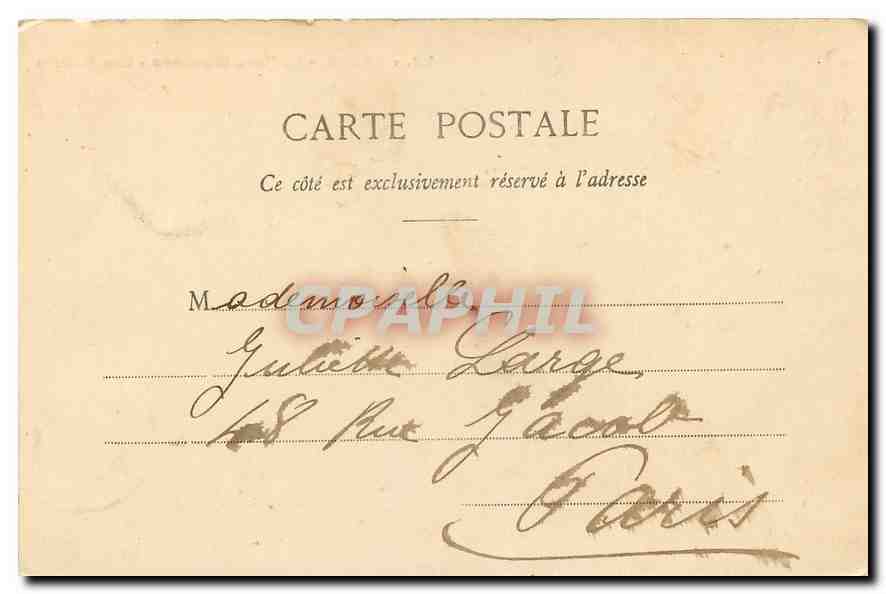 CARTE POSTALE
Ce côté est exclusivement réservé à l'adresse
Mademoiselle
CPAPHIL
Juliette Large
48 Rue Jacob
Paris